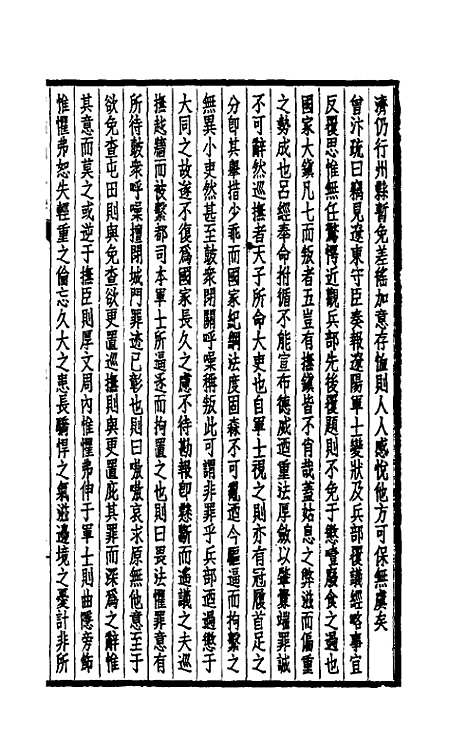 濟仍行州縣暫免差徭加意存恤則人人感悅他方可保無虞矣
曾汴疏曰竊見遼東守臣奏報遼陽軍士變狀及兵部覆議經略事宜
反覆思惟無任驚愕近觀兵部先後覆題則不免于懲噎廢食之過也
國家大鎮凡七而叛者五豈有撫鎮皆不肖哉蓋姑息之弊滋而偏重
之勢成也呂經奉命拊循不能宣布德威迺重法厚斂以肇釁端罪誠
不可辭然巡撫者天子所命大吏也自軍士視之則亦有冠履首足之
分卽其舉措少乖而國家紀綱法度固森不可亂迺今驅逼而拘繫之
無異小吏然甚至鼓衆閉關呼噪稱叛此可謂非罪乎兵部迺過懲于
大同之故遂不復爲國家長久之慮不待勘報卽懸斷而遙議之夫巡
撫越牆而被繫都司本軍士所逼逐而拘置之也則曰畏法懼罪意有
所待鼓衆呼噪擅閉城門罪迹已彰也則曰嗷嗷哀求原無他意至于
欲免查屯田則與免查欲更置巡撫則與更置庇其罪而深爲之辭惟
其意而莫之或逆于撫臣則厚文周內惟懼弗伸于軍士則曲隱旁飾
惟懼弗恕失輕重之倫忘久大之患長驕悍之氣滋邊境之憂計非所